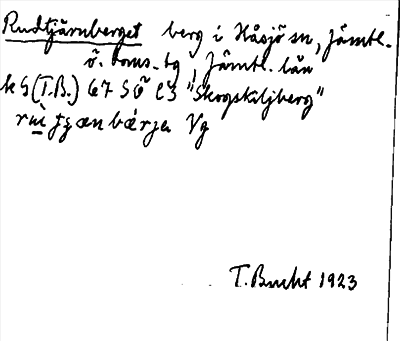 Rudtjärnberget berg i Håsjö sn, Jämtl.
ö. doms. tg, Jämtl. län
k G (T.B.) 67 SÖ "Skogskiljberg"
bärja Vg
T. Bucht 1923